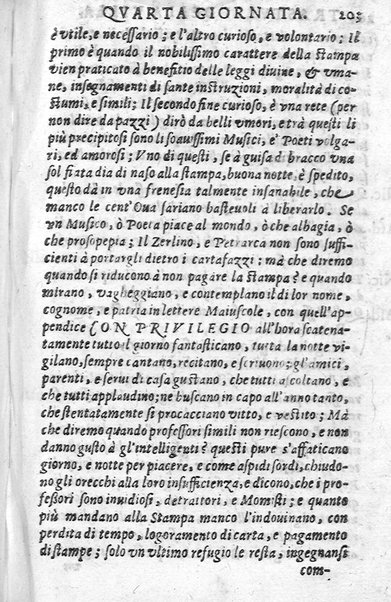 QVARTA GIORNATA. 203
è vtile, e necessario; e l'altro curioso, e volontario; Il
primo è quando il nobilissimo carattere della Stampa
vien praticato à benefitio delle leggi diuine, & vma-
ne, insegnamenti di sante instruzioni, moralità di co-
stumi, e simili; Il secondo fine curioso, è vna rete (per
non dire da pazzi) dirò da belli vmori, e trà questi li
più precipitosi sono li soauissimi Musici, e' Poeti volga-
ri, ed amorosi; Vno di questi, se à guisa di bracco vna
sol fiata dia di naso alla stampa, buona notte, è spedito,
questo dà in vna frenesia talmente insanabile, che
manco le cent'Oua sariano basteuoli à liberarlo. Se
vn Musico, ò Poeta piace al mondo, ò che albagia, ò
che prosopepia; Il Zerlino, e Petrarca non sono suffi-
cienti à portargli dietro i cartafazzi: mà che diremo
quando si riducono à non pagare la Stampa? e quando
mirano, vagheggiano, e contemplano il di lor nome,
cognome, e patria in lettere Maiuscole, con quell'ap-
pendice CON PRIVILEGIO all'hora scatena-
tamente tutto il giorno fantasticano, tutta la notte vi-
gilano, sempre cantano, recitano, e scriuono; gl'amici,
parenti, e serui di casa gustano, che tutti ascoltano, e
che tutti applaudino; ne buscano in capo all'anno tanto,
che stentatamente si procacciano vitto, e vestito; Mà
che diremo quando professori simili non riescono, e non
danno gusto à gl'intelligenti? questi pure s'affaticano
giorno, e notte per piacere, e come aspidi sordi, chiudo-
no gli orecchi alla loro insufficienza, e dicono, che i pro-
fessori sono inuidiosi, detrattori, e Momisti; e quanto
più mandano alla Stampa manco l'indouinano, con
perdita di tempo, logoramento di carta, e pagamento
di stampe; solo vn vltimo refugio le resta, ingegnansi
com-